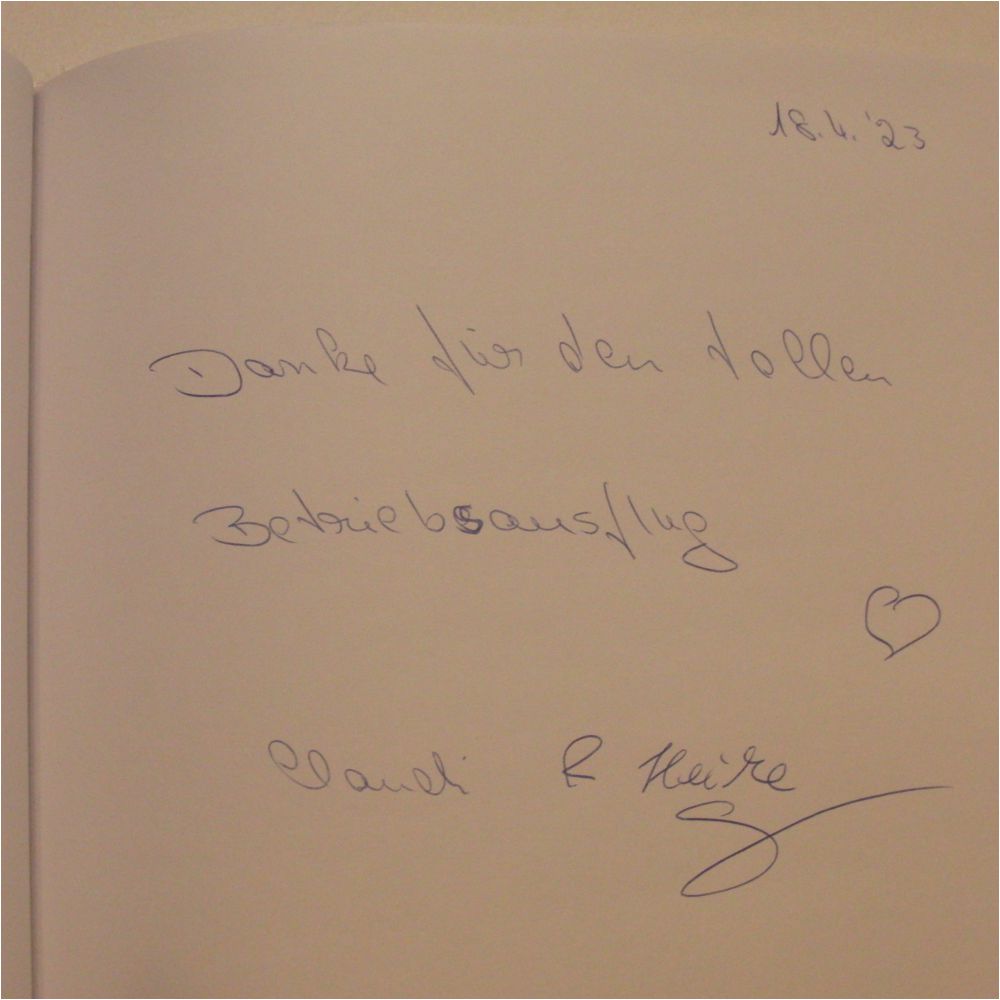 18.4.'23
Danke für den tollen
Betriebsausflug
Claudi & Heike